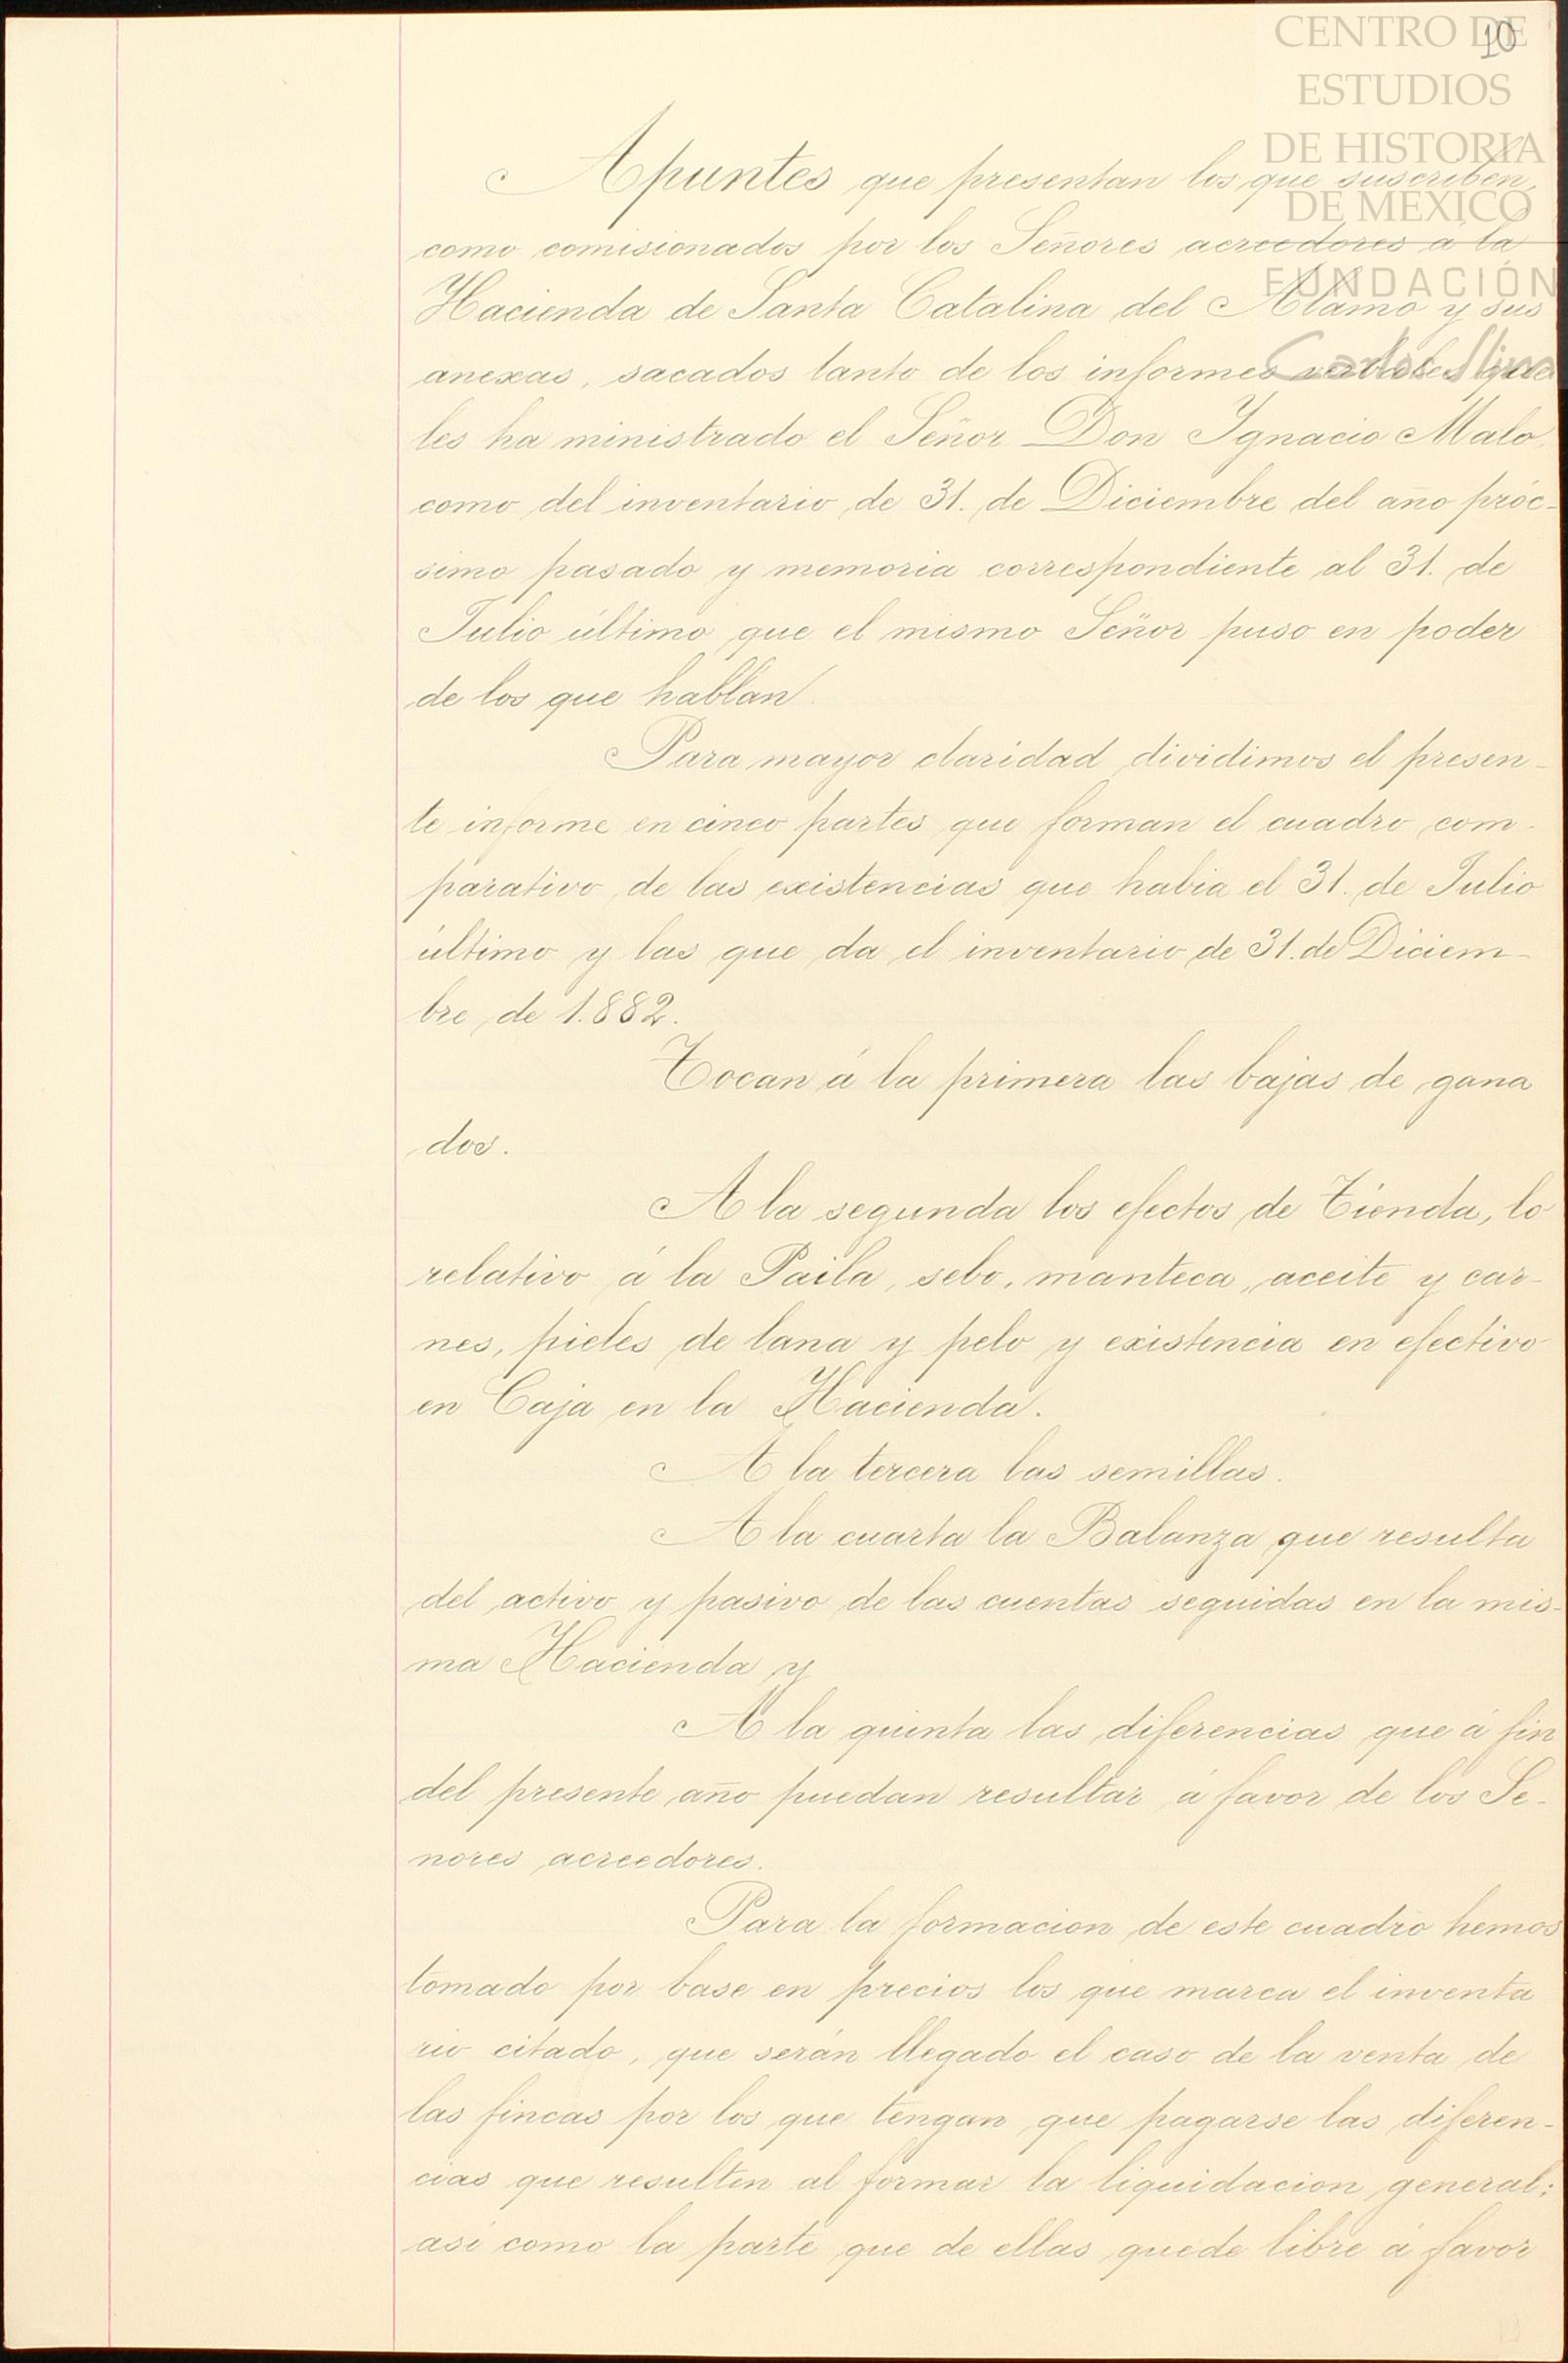 CENTRO DE
10
ESTUDIOS
DE HISTORIA
DE MEXICO
FUNDACIÓN
Carlos Slim
Apuntes que presentan los que suscriben,
como comisionados por los Señores acreedores á la
Hacienda de Santa Catalina del Alamo y sus
anexas, sacados tanto de los informes verbales que
les ha ministrado el Señor Don Ygnacio Malo,
como del inventario de 31. de Diciembre del año próc-
simo pasado y memoria correspondiente al 31. de
Julio último que el mismo Señor puso en poder
de los que hablan.
Para mayor claridad dividimos el presen-
te informe en cinco partes que forman el cuadro com-
parativo de las existencias que habia el 31. de Julio
último y las que da el inventario de 31. de Diciem-
bre de 1.882.
Tocan á la primera las bajas de gana
dos.
A la segunda los efectos de Tienda, lo
relativo á la Paila, sebo, manteca, aceite y car-
nes, pieles de lana y pelo y existencia en efectivo
en Caja en la Hacienda.
A la tercera las semillas.
A la cuarta la Balanza que resulta
del activo y pasivo de las cuentas seguidas en la mis-
ma Hacienda y
A la quinta las diferencias que á fin
del presente año puedan resultar á favor de los Se-
nores acreedores.
Para la formacion de este cuadro hemos
tomado por base en precios los que marca el inventa
rio citado, que serán llegado el caso de la venta de
las fincas por los que tengan que pagarse las diferen-
cias que resulten al formar la liquidacion general;
asi como la parte que de ellas quede libre á favor